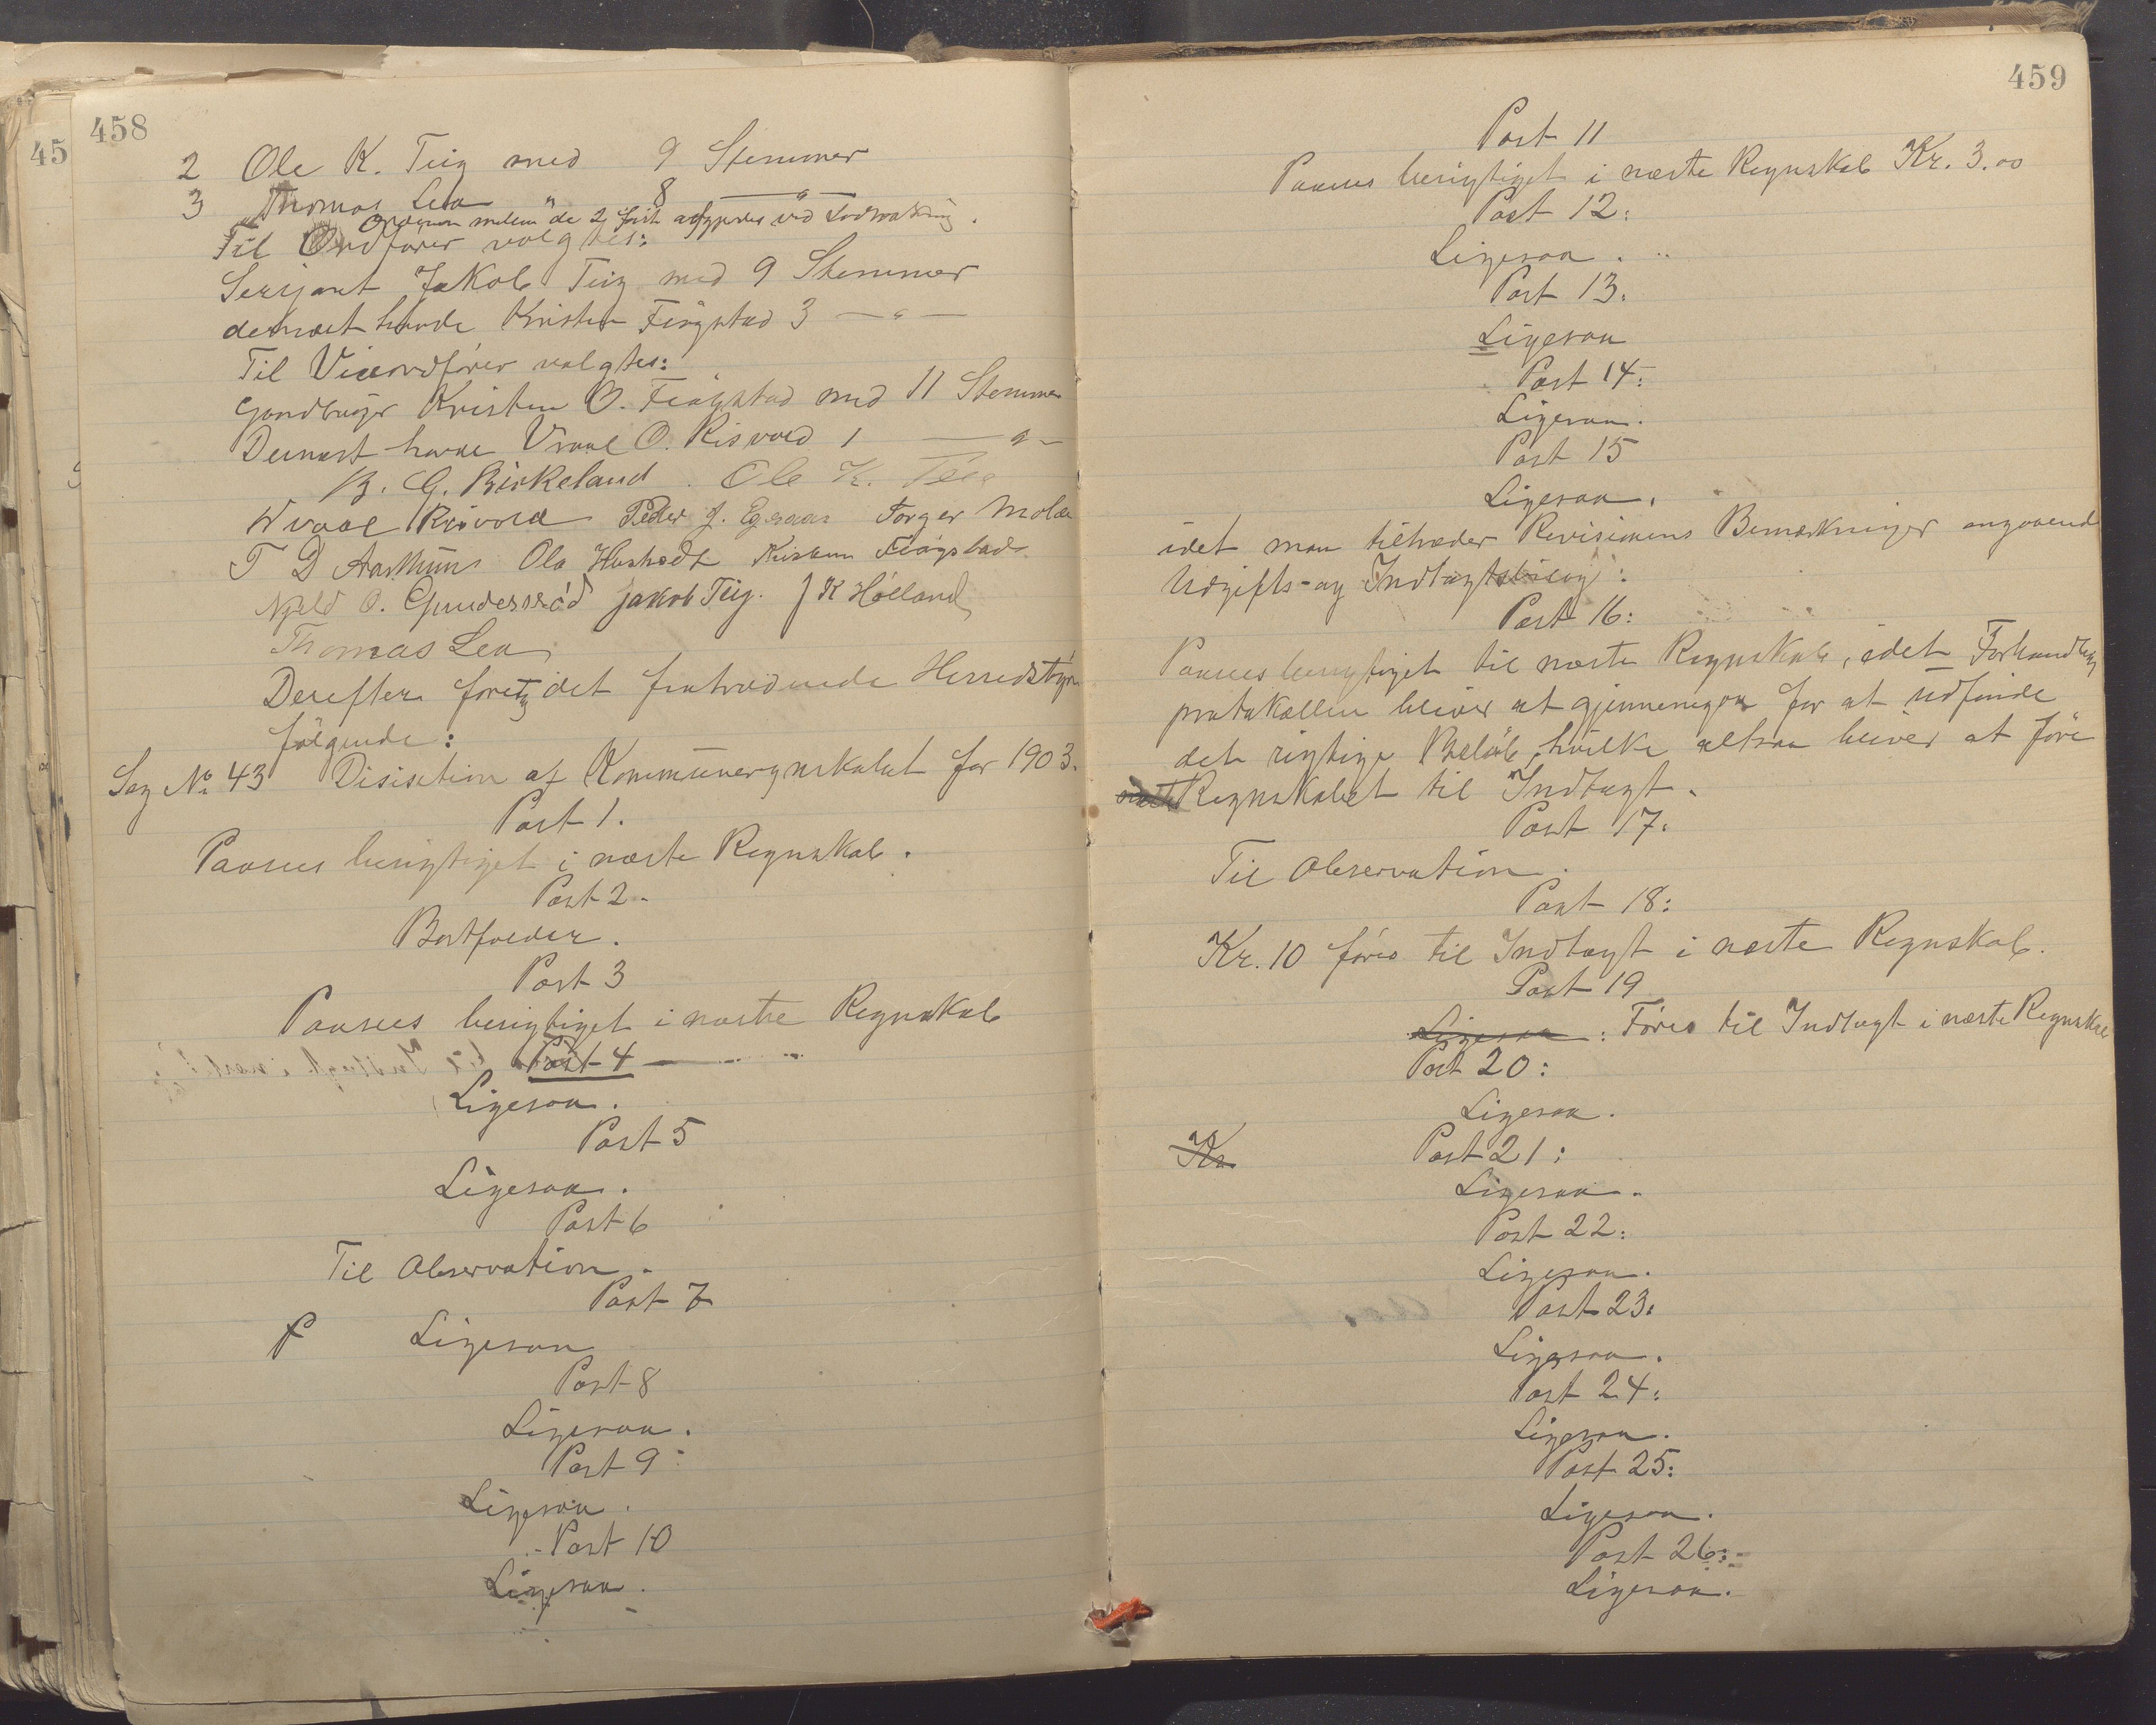 458
45
2 Ole K. Teig med 9 Stemmer
3 Thomas Lea " 8 — " —
Ordenen mellem de 2 først afgjordes ved Lodtrækning.
Til Ordfører valgtes:
Sersjant Jakob Teig med 9 Stemmer
dernæst havde Kristen Fiågstad 3 — " —
Til Viceordfører valgtes:
Gaardbruger Kristen O. Fiågstad med 11 Stemmer
Dernæst havde Vraal O. Risvold 1 — " —
B. G. Birkeland. Ole K. Teig
Wraal Risvold Peder J. Egeraas Torger Molan
T D Aasthuns Ola Kristen Fiågstad
O. Gundersrød Jakob Teig. J K Hølland
Thomas Lea
Derefter foretog det fratrædende Herredstyre
følgende:
Sag No 43 Disisition af Kommuneregnskabet for 1903.
Post 1.
Paasees berigtiget i næste Regnskab.
Post 2.
Bortfalder.
Post 3
Paasees berigtiget i næste Regnskab
Post 4
Ligesaa.
Post 5
Ligesaa.
Post 6
Til Observation.
Post 7
f Ligesaa
Post 8
Ligesaa.
Post 9:
Ligesaa.
Post 10
Ligesaa.
459
Post 11
Paasees berigtiget i næste Regnskab Kr. 3.00
Post 12:
Ligesaa.
Post 13:
Ligesaa
Post 14:
Ligesaa.
Post 15
Ligesaa,
idet man tiltræder Revisionens Bemærkninger angaaende
Udgifts- og Indtægtsbilag:
Post 16:
Paasees berigtiget til næste Regnskab, idet Forhandlings
protokollen bliver at gjennemgaa for at udfinde
det rigtige Beløb, hvilke altsaa bliver at føre
Regnskabet til Indtægt.
Post 17:
Til Observation.
Post 18:
Kr. 10 føres til Indtægt i næste Regnskab.
Post 19
Ligesaa: Føres til Indtægt i næste Regnskab
Post 20:
Ligesaa.
Kr. Post 21:
Ligesaa.
Post 22:
Ligesaa.
Post 23:
Ligesaa.
Post 24:
Ligesaa.
Post 25:
Ligesaa.
Post 26:
Ligesaa.